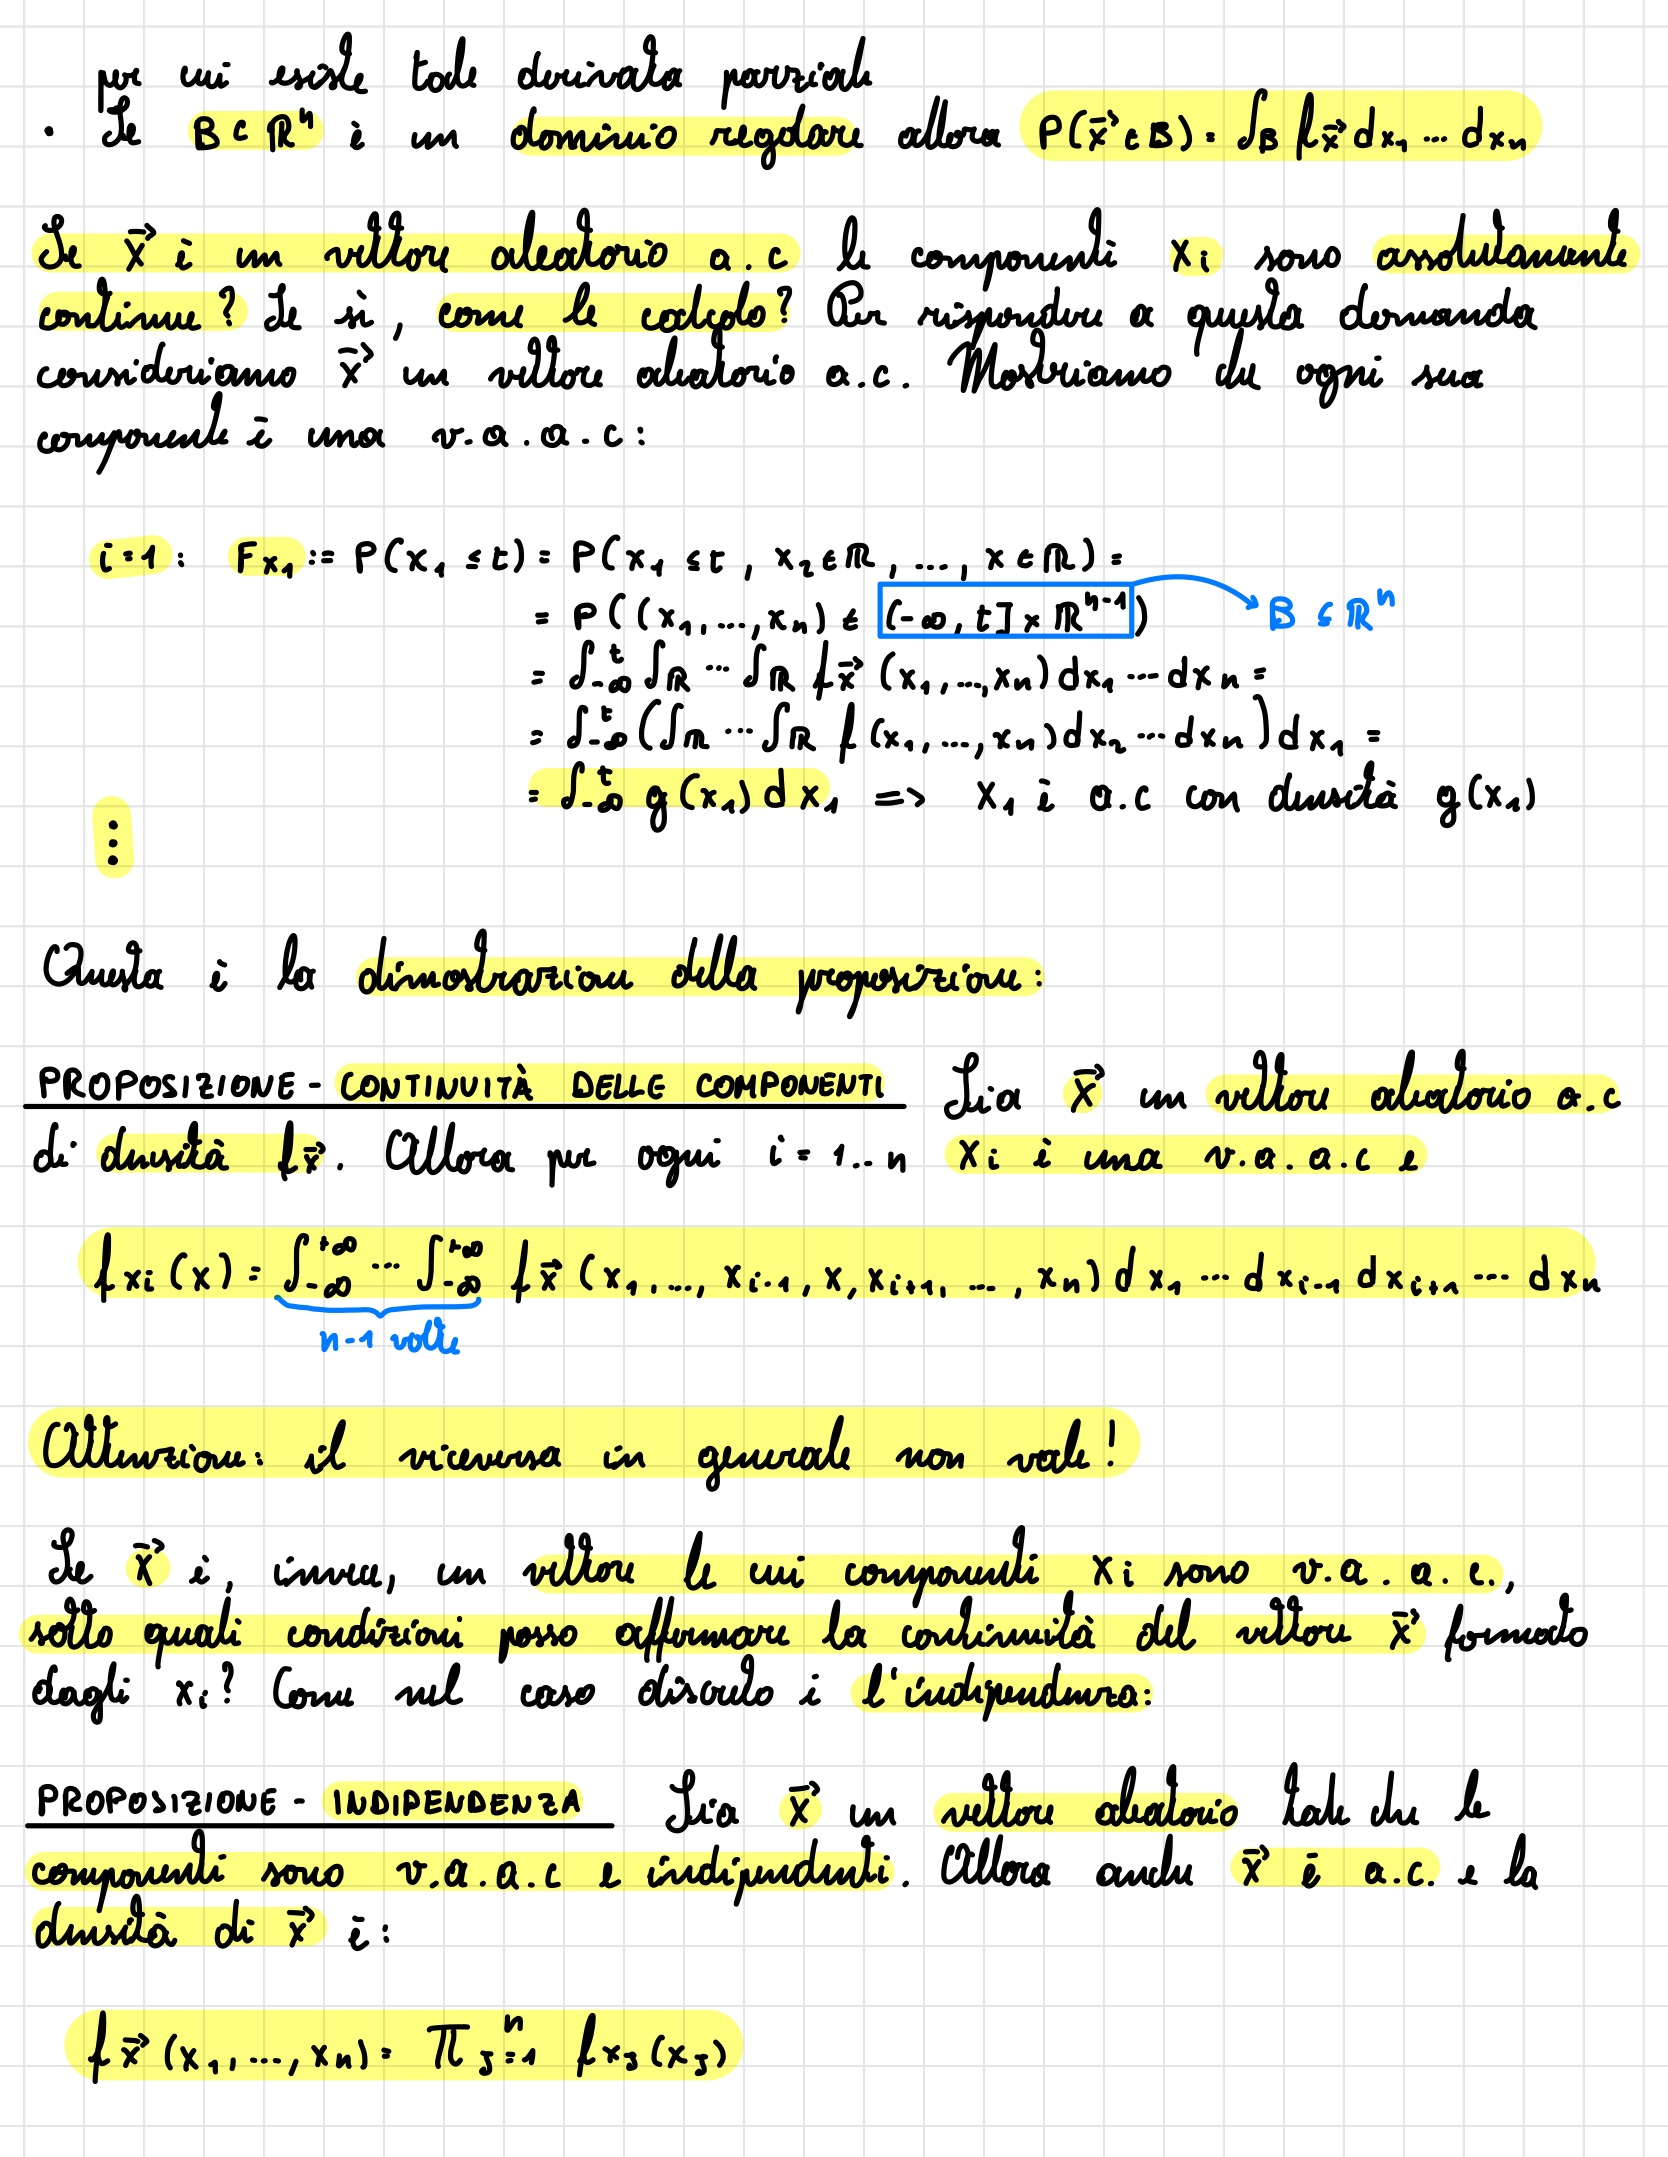 per cui esiste tale derivata parziale
• Se B ⊂ ℝⁿ è un dominio regolare allora P(x⃗ ∈ B) = ∫_B f_x⃗ dx₁ ... dxₙ
Se x⃗ è un vettore aleatorio a.c le componenti xᵢ sono assolutamente
continue? Se sì, come le calcolo? Per rispondere a questa domanda
consideriamo x⃗ un vettore aleatorio a.c. Mostriamo che ogni sua
componente è una v.a.a.c:
i=1: F_x₁ := P(x₁ ≤ t) = P(x₁ ≤ t, x₂ ∈ ℝ, ..., x ∈ ℝ) =
= P((x₁, ..., xₙ) ∈ (-∞, t] × ℝⁿ⁻¹) → B ⊆ ℝⁿ
= ∫_-∞^t ∫_ℝ ... ∫_ℝ f_x⃗ (x₁, ..., xₙ) dx₁ ... dxₙ =
= ∫_-∞^t (∫_ℝ ... ∫_ℝ f (x₁, ..., xₙ) dx₂ ... dxₙ) dx₁ =
= ∫_-∞^t g(x₁) dx₁ => X₁ è a.c con densità g(x₁)
⋮
Questa è la dimostrazione della proposizione:
PROPOSIZIONE - CONTINUITÀ DELLE COMPONENTI Sia x⃗ un vettore aleatorio a.c
di densità f_x⃗. Allora per ogni i = 1..n xᵢ è una v.a.a.c e
f_xᵢ(x) = ∫_-∞^+∞ ... ∫_-∞^+∞ f_x⃗ (x₁, ..., xᵢ₋₁, x, xᵢ₊₁, ..., xₙ) dx₁ ... dxᵢ₋₁ dxᵢ₊₁ ... dxₙ
n-1 volte
Attenzione: il viceversa in generale non vale!
Se x⃗ è, invece, un vettore le cui componenti xᵢ sono v.a.a.c.,
sotto quali condizioni posso affermare la continuità del vettore x⃗ formato
dagli xᵢ? Come nel caso discreto è l'indipendenza:
PROPOSIZIONE - INDIPENDENZA Sia x⃗ un vettore aleatorio tale che le
componenti sono v.a.a.c e indipendenti. Allora anche x⃗ è a.c. e la
densità di x⃗ è:
f_x⃗ (x₁, ..., xₙ) = ∏_J=1^n f_xJ(xJ)